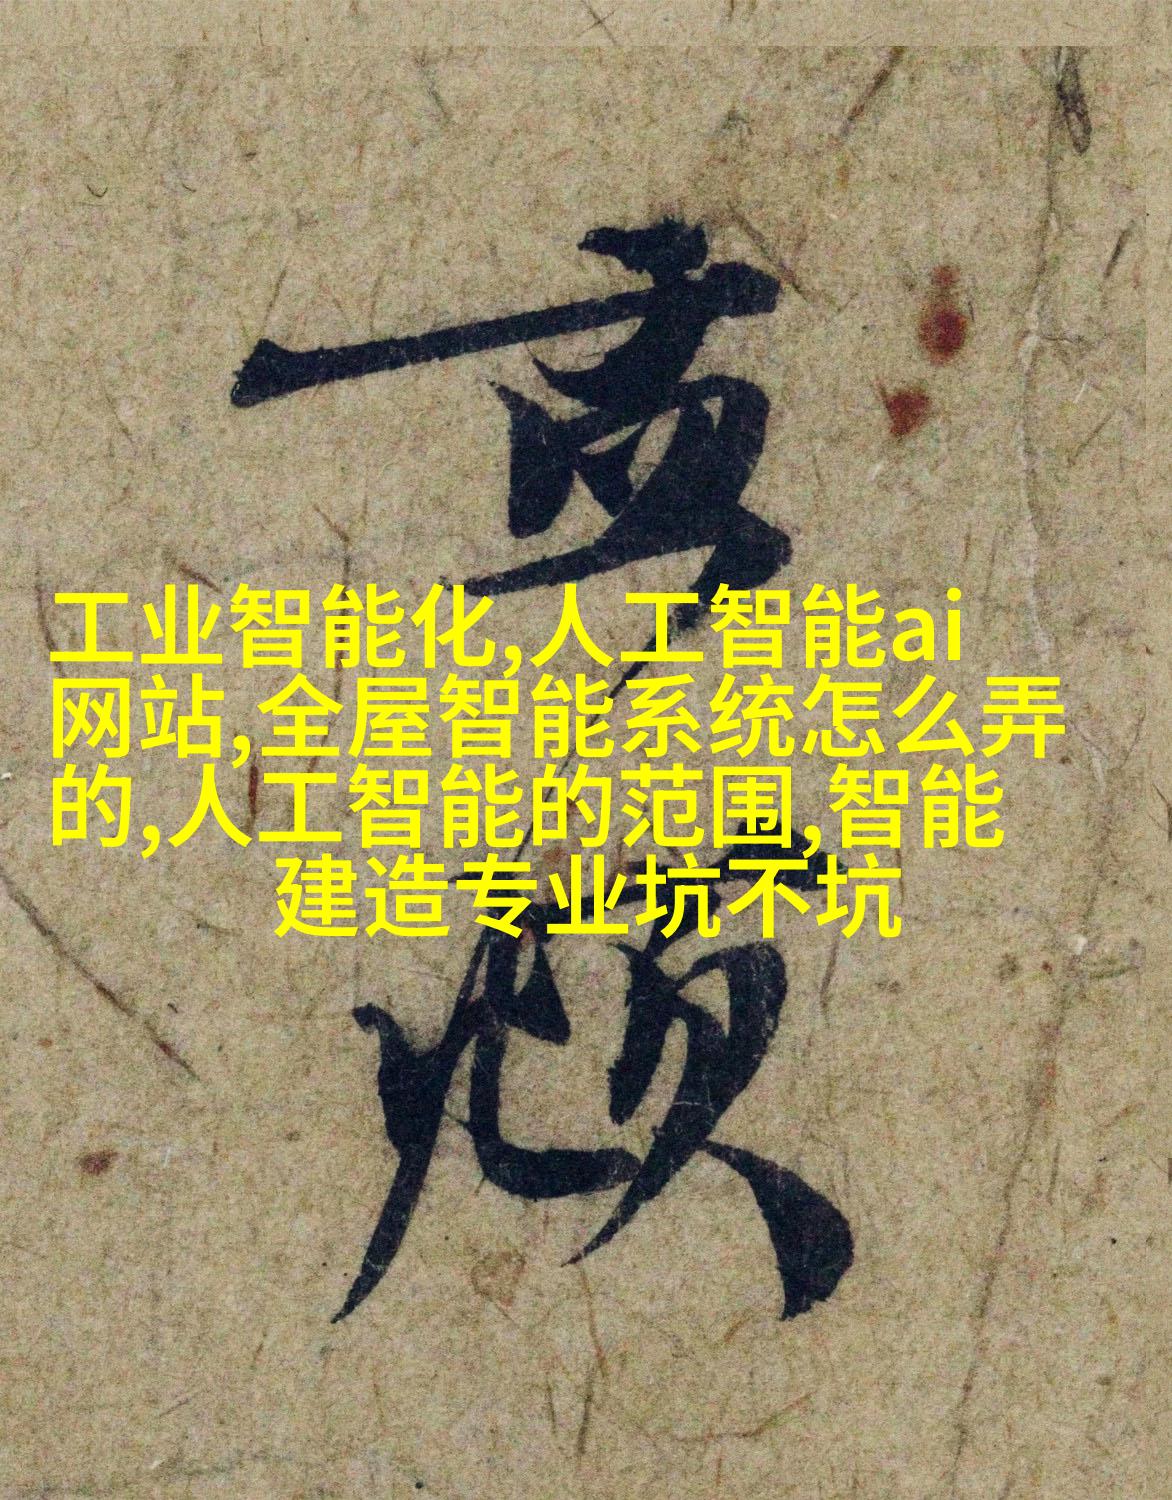 工业智能化,人工智能ai
网站,全屋智能系统怎么弄
的,人工智能的范围,智能
建造专业坑不坑